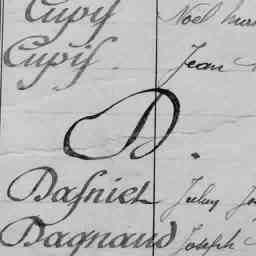 Cupif Noel
Cupif. Jean
D.
Dasniel Jules
Dagnaud Joseph